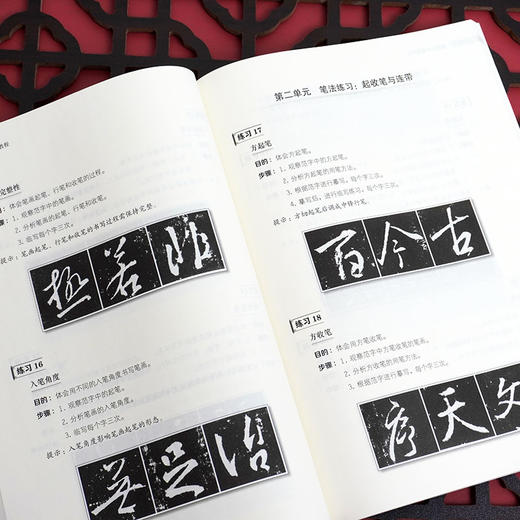 教程
完整性
目的：体会笔画起笔、行笔和收笔的过程。
步骤：1. 观察范字中的笔画。
2. 分析笔画的起笔、行笔和收笔。
3. 临写每个字三次。
提示：笔画起笔、行笔和收笔的书写过程需保持完整。
极 若 非
练习 16
入笔角度
目的：体会用不同的入笔角度书写笔画。
步骤：1. 观察范字中的起笔。
2. 分析笔画的入笔角度。
3. 临写每个字三次。
提示：入笔角度影响笔画起笔的形态。
足
第二单元 笔法练习：起收笔与连带
练习 17
方起笔
目的：体会方起笔。
步骤：1. 观察范字中的方起笔。
2. 分析方起笔的用笔方法。
3. 根据范字进行摹写，每个字三次。
4. 摹写后，进行临写练习，每个字三次。
提示：方切起笔后调成中锋行笔。
百 今 古
练习 18
方收笔
目的：体会用方笔收笔。
步骤：1. 观察范字中方笔收笔的笔画。
2. 分析方笔收笔的用笔方法。
3. 根据范字进行摹写，每个字三次。
天 文